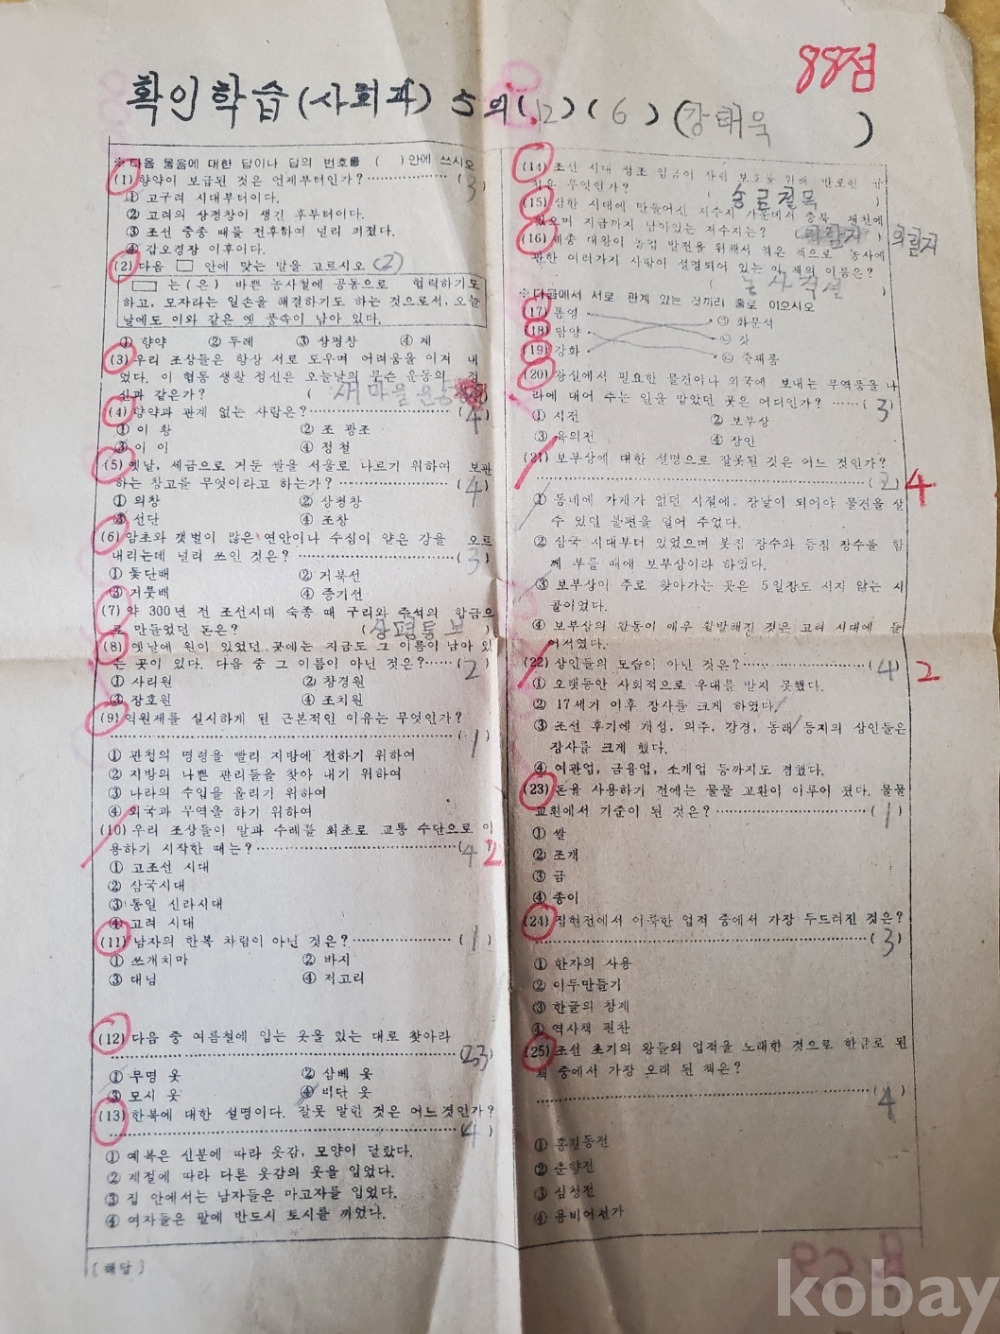 88점
확인학습(사회과) 5의(12)(6)(강태욱)
※다음 물음에 대한 답이나 답의 번호를 ( )안에 쓰시오
(1) 향약이 보급된 것은 언제부터인가?……………(3)
① 고구려 시대부터이다.
② 고려의 상평창이 생긴 후부터이다.
③ 조선 중종 때를 전후하여 널리 퍼졌다.
④ 갑오경장 이후이다.
(2) 다음 □ 안에 맞는 말을 고르시오 (2)
□는(은) 바쁜 농사철에 공동으로 협력하기도
하고, 모자라는 일손을 해결하기도 하는 것으로서, 오늘
날에도 이와 같은 옛 풍속이 남아 있다.
① 향약 ② 두레 ③ 상평창 ④ 계
(3) 우리 조상들은 항상 서로 도우며 어려움을 이겨 내
었다. 이 협동 생활 정신은 오늘날의 무슨 운동의 정
신과 같은가? (새마을운동)
(4) 향약과 관계 없는 사람은?……………(4)
① 이 황 ② 조 광조
③ 이 이 ④ 정 철
(5) 옛날, 세금으로 거둔 쌀을 서울로 나르기 위하여 보관
하는 창고를 무엇이라고 하는가?……………(4)
① 의창 ② 상평창
③ 선단 ④ 조창
(6) 암초와 갯벌이 많은 연안이나 수심이 얕은 강을 오르
내리는데 널리 쓰인 것은?……………(3)
① 돛단배 ② 거북선
③ 거룻배 ④ 증기선
(7) 약 300년 전 조선시대 숙종 때 구리와 주석의 합금으
로 만들었던 돈은? (상평통보)
(8) 옛날에 원이 있었던 곳에는 지금도 그 이름이 남아 있
는 곳이 있다. 다음 중 그 이름이 아닌 것은?……(2)
① 사리원 ② 창경원
③ 장호원 ④ 조치원
(9) 역원제를 실시하게 된 근본적인 이유는 무엇인가?
……………(1)
① 관청의 명령을 빨리 지방에 전하기 위하여
② 지방의 나쁜 관리들을 찾아 내기 위하여
③ 나라의 수입을 올리기 위하여
④ 외국과 무역을 하기 위하여
(10) 우리 조상들이 말과 수레를 최초로 교통 수단으로 이
용하기 시작한 때는?……………(4) 2
① 고조선 시대
② 삼국시대
③ 통일 신라시대
④ 고려 시대
(11) 남자의 한복 차림이 아닌 것은?……………(1)
① 쓰개치마 ② 바지
③ 대님 ④ 저고리
(12) 다음 중 여름철에 입는 옷을 있는 대로 찾아라
……………(23)
① 무명 옷 ② 삼베 옷
③ 모시 옷 ④ 비단 옷
(13) 한복에 대한 설명이다. 잘못 말한 것은 어느것인가?
……………(4)
① 예복은 신분에 따라 옷감, 모양이 달랐다.
② 계절에 따라 다른 옷감의 옷을 입었다.
③ 집 안에서는 남자들은 마고자를 입었다.
④ 여자들은 팔에 반드시 토시를 끼었다.
[해답]
(14) 조선 시대 정조 임금이
무엇인가?
(15) 삼한 시대에 만들어진 저수지 가운데서 충북 제천에
있으며 지금까지 남아있는 저수지는? ( ) 의림지
(16) 세종 대왕이 농업 발전을 위해서 엮은 책으로 농사에
관한 여러가지 사항이 설명되어 있는 이 책의 이름은?
(농사직설)
※다음에서 서로 관계 있는 것끼리 줄로 이으시오
(17) 통영 ㉠ 화문석
(18) 담양 ㉡ 갓
(19) 강화 ㉢ 죽제품
(20) 왕실에서 필요한 물건이나 외국에 보내는 무역품을 나
라에 대어 주는 일을 맡았던 곳은 어디인가?……(3)
① 시전 ② 보부상
③ 육의전 ④ 장인
(21) 보부상에 대한 설명으로 잘못된 것은 어느 것인가?
……………(2) 4
① 동네에 가게가 없던 시절에, 장날이 되어야 물건을 살
수 있던 불편을 덜어 주었다.
② 삼국 시대부터 있었으며 봇짐 장수와 등짐 장수를 함
께 부를 때에 보부상이라 하였다.
③ 보부상이 주로 찾아가는 곳은 5일장도 서지 않는 시
골이었다.
④ 보부상의 활동이 매우 활발해진 것은 고려 시대에 들
어서였다.
(22) 상인들의 모습이 아닌 것은?……………(4) 2
① 오랫동안 사회적으로 우대를 받지 못했다.
② 17세기 이후 장사를 크게 하였다.
③ 조선 후기에 개성, 의주, 강경, 동래 등지의 상인들은
장사를 크게 했다.
④ 여관업, 금융업, 소개업 등까지도 겸했다.
(23) 돈을 사용하기 전에는 물물 교환이 이루어 졌다. 물물
교환에서 기준이 된 것은?……………(1)
① 쌀
② 조개
③ 금
④ 종이
(24) 집현전에서 이룩한 업적 중에서 가장 두드러진 것은?
……………(3)
① 한자의 사용
② 이두만들기
③ 한글의 창제
④ 역사책 편찬
(25) 조선 초기의 왕들의 업적을 노래한 것으로 한글로 된
책 중에서 가장 오래 된 책은?
……………(4)
① 홍길동전
② 춘향전
③ 심청전
④ 용비어천가
kobay